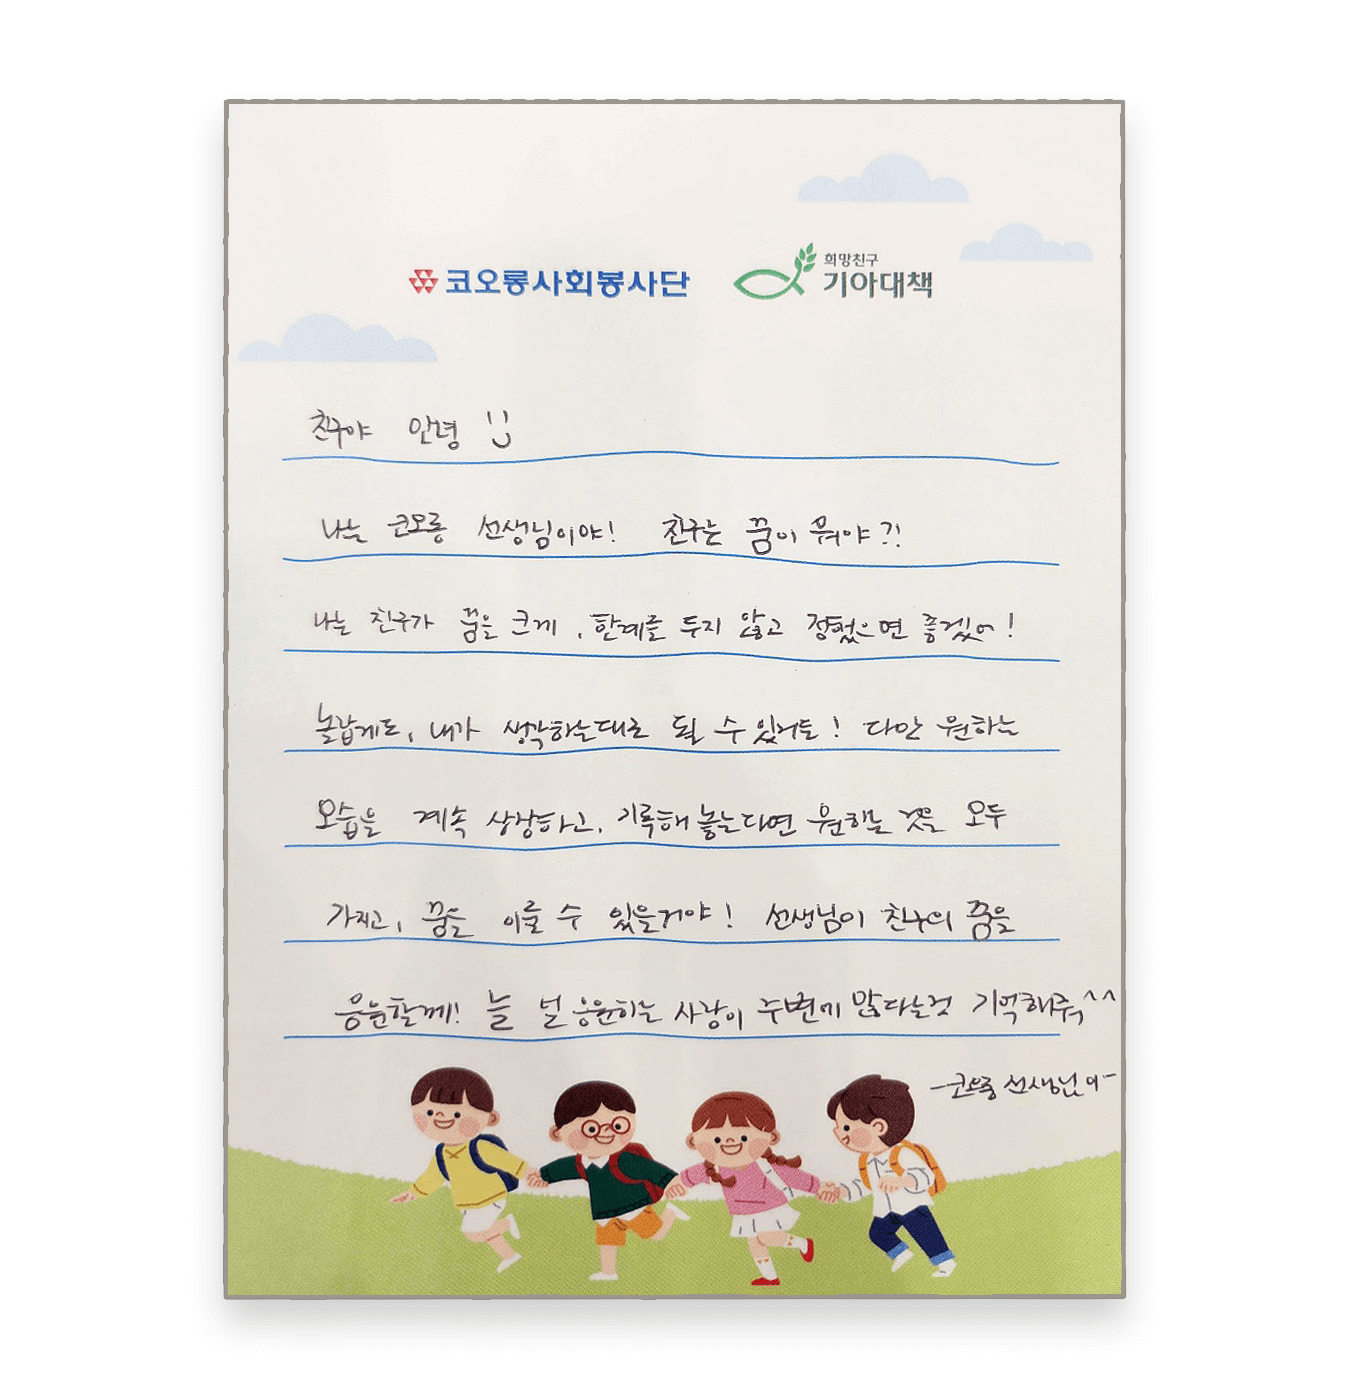 코오롱사회봉사단
희망친구
기아대책
친구야 안녕
나는 코오롱 선생님이야! 친구는 꿈이 뭐야?!
나는 친구가 꿈을 크게, 한계를 두지 않고 정했으면 좋겠어!
놀랍게도, 내가 생각하는대로 될 수 있거든! 다만 원하는
모습을 계속 상상하고, 기록해 놓는다면 원하는 것을 모두
가지고, 꿈을 이룰 수 있을거야! 선생님이 친구의 꿈을
응원할께! 늘 널 응원하는 사람이 주변에 많다는것 기억해줘^^
-코오롱 선생님이-